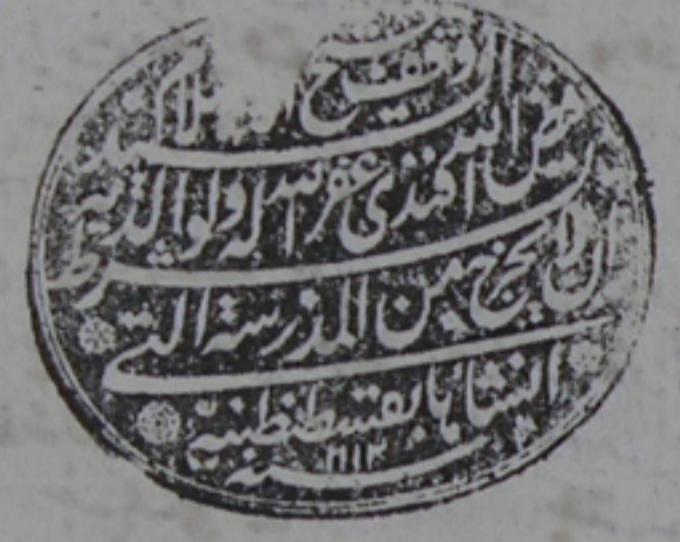 وقف شيخ الاسلام السيد
فيض الله افندى غفر الله له ولوالديه
بشرط ان لا يخرج من المدرسة التى
انشاها بقسطنطنية
سنه